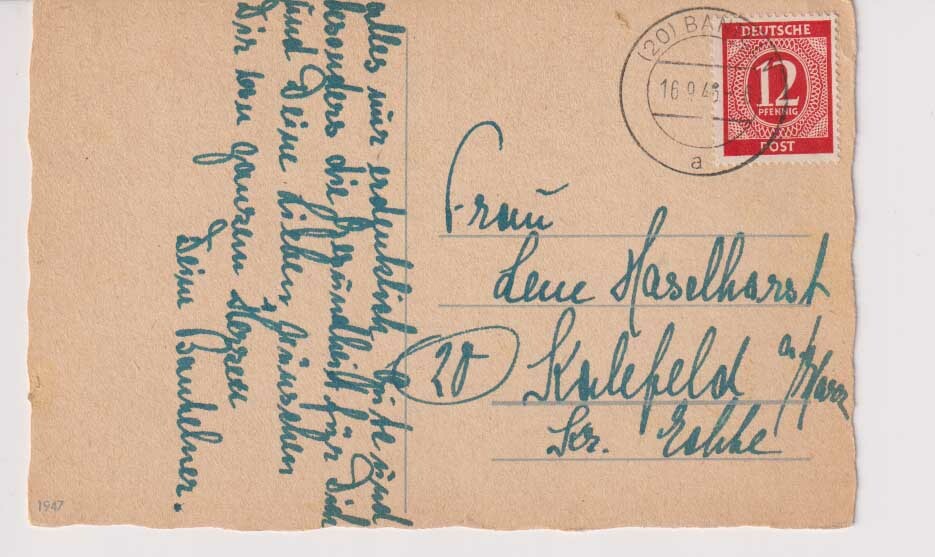 alles nur erdenklich Gute und
besonders die Gesundheit für Dich
und Deine Lieben, wünschen
Dir von ganzem Herzen
Deine
(20)
16.9.4
a
DEUTSCHE
12
PFENNIG
POST
Frau
Lene Haselhorst
20 Kalefeld a/Harz
Kr.
1947